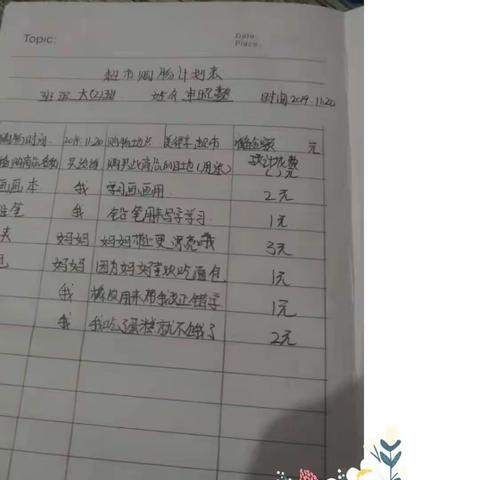 Topic:
Date:
Place:
超市购物计划表
班级 大(2)班 姓名 时间 2019.11.20
购物时间 2019.11.20 购物地点 超市 元
买给谁 购买此商品的目的(用途) 预计花费( )元
画画本 我 学习画画用 2元
铅笔 我 铅笔用来写字学习 1元
夹 妈妈 妈妈带上更漂亮哦 3元
包 妈妈 因为妈妈喜欢吃面包 1元
我 橡皮用来帮我改正错字 1元
我 我吃了蛋糕就不饿了 2元